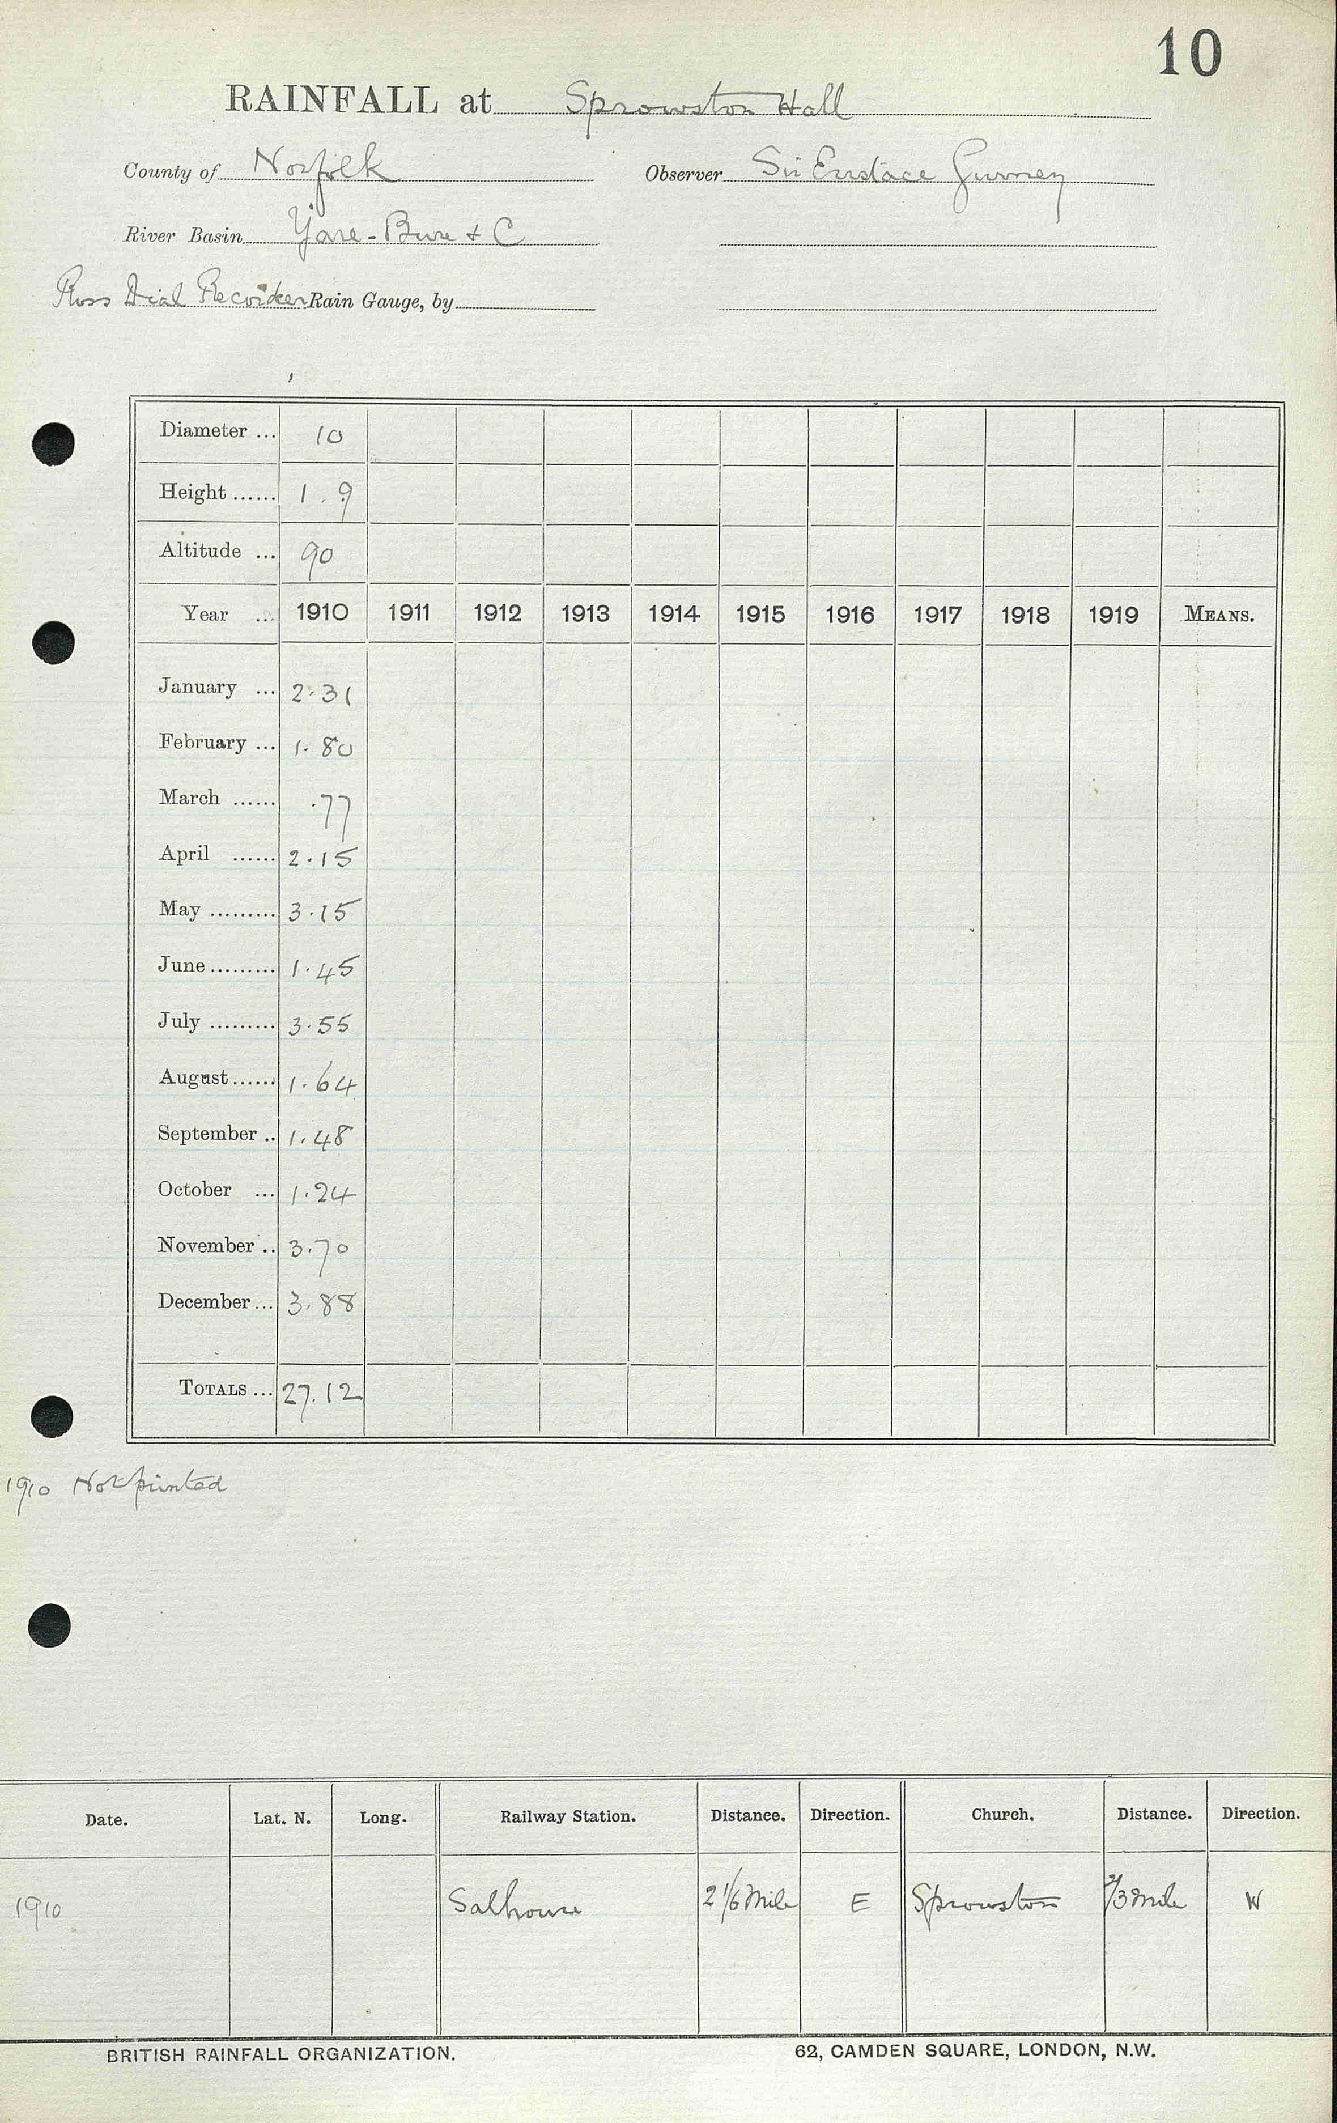 10
RAINFALL at Sprowston Hall
County of Norfolk Observer Sir Eustace Gurney
River Basin Yare - Bure & C
Ross Dial Recorder Rain Gauge, by
Diameter ... 10
Height ...... 1.9
Altitude ... 90
Year ... 1910 1911 1912 1913 1914 1915 1916 1917 1918 1919 MEANS.
January ... 2.31
February ... 1.80
March ...... .77
April ...... 2.15
May ......... 3.15
June ......... 1.45
July ......... 3.55
August ...... 1.64
September .. 1.48
October ... 1.24
November .. 3.70
December ... 3.88
TOTALS ... 27.12
1910 Not printed
Date. Lat. N. Long. Railway Station. Distance. Direction. Church. Distance. Direction.
1910 Salhouse 2 1/6 Mile E Sprowston 2/3 mile W
BRITISH RAINFALL ORGANIZATION. 62, CAMDEN SQUARE, LONDON, N.W.